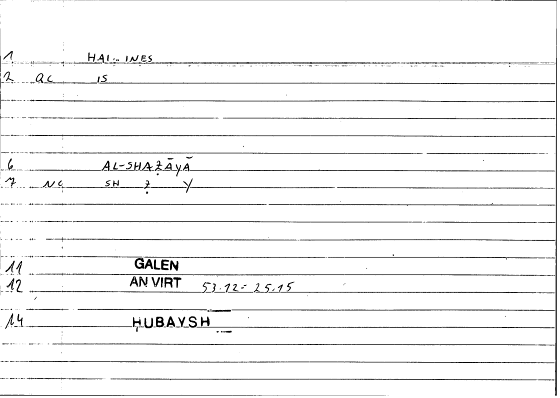 1 HAI-INES
2 QC IS
6 AL-SHAẒĀYĀ
7 NC SH Ẓ Y
11 GALEN
12 AN VIRT 53.12-25.15
14 ḤUBAYSH